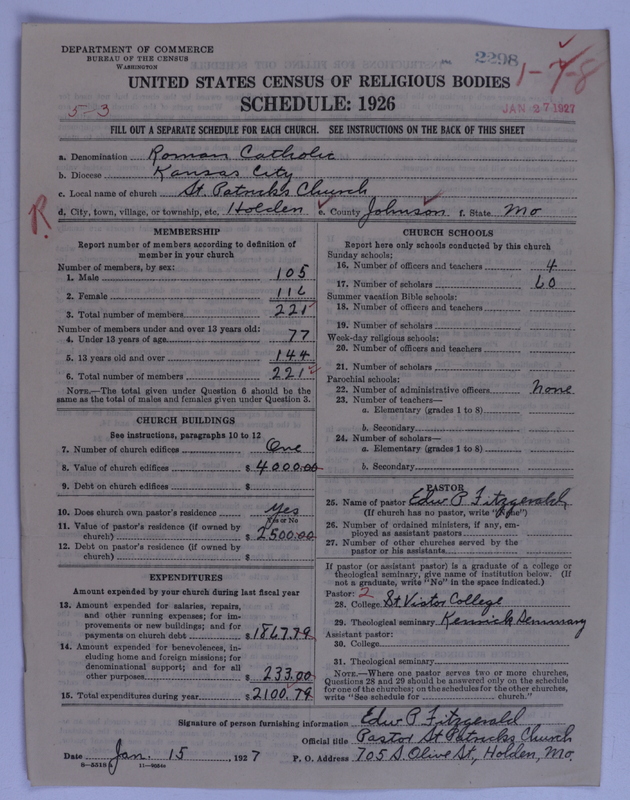 DEPARTMENT OF COMMERCE
BUREAU OF THE CENSUS
WASHINGTON
2298
1-7-8
UNITED STATES CENSUS OF RELIGIOUS BODIES
5-3
SCHEDULE: 1926
JAN 27 1927
FILL OUT A SEPARATE SCHEDULE FOR EACH CHURCH. SEE INSTRUCTIONS ON THE BACK OF THIS SHEET
a. Denomination Roman Catholic
b. Diocese Kansas City
c. Local name of church St. Patricks Church
R
d. City, town, village, or township, etc. Holden e. County Johnson f. State Mo
MEMBERSHIP
Report number of members according to definition of
member in your church
Number of members, by sex:
1. Male 105
2. Female 116
3. Total number of members 221
Number of members under and over 13 years old:
4. Under 13 years of age 77
5. 13 years old and over 144
6. Total number of members 221
NOTE.—The total given under Question 6 should be the
same as the total of males and females given under Question 3.
CHURCH BUILDINGS
See instructions, paragraphs 10 to 12
7. Number of church edifices One
8. Value of church edifices $ 4000.00
9. Debt on church edifices $
10. Does church own pastor's residence Yes
Yes or No
11. Value of pastor's residence (if owned by
church) $ 2500.00
12. Debt on pastor's residence (if owned by
church) $
EXPENDITURES
Amount expended by your church during last fiscal year
13. Amount expended for salaries, repairs,
and other running expenses; for im-
provements or new buildings; and for
payments on church debt $ 1867.79
14. Amount expended for benevolences, in-
cluding home and foreign missions; for
denominational support; and for all
other purposes $ 233.00
15. Total expenditures during year $ 2100.79
CHURCH SCHOOLS
Report here only schools conducted by this church
Sunday schools:
16. Number of officers and teachers 4
17. Number of scholars 60
Summer vacation Bible schools:
18. Number of officers and teachers
19. Number of scholars
Week-day religious schools:
20. Number of officers and teachers
21. Number of scholars
Parochial schools:
22. Number of administrative officers none
23. Number of teachers—
a. Elementary (grades 1 to 8)
b. Secondary
24. Number of scholars—
a. Elementary (grades 1 to 8)
b. Secondary
PASTOR
25. Name of pastor Edw P. Fitzgerald
(If church has no pastor, write "None")
26. Number of ordained ministers, if any, em-
ployed as assistant pastors
27. Number of other churches served by the
pastor or his assistants
If pastor (or assistant pastor) is a graduate of a college or
theological seminary, give name of institution below. (If
not a graduate, write "No" in the space indicated.)
Pastor: 2
28. College St. Viator College
29. Theological seminary Kenrick Seminary
Assistant pastor:
30. College
31. Theological seminary
NOTE.—Where one pastor serves two or more churches,
Questions 28 and 29 should be answered only on the schedule
for one of the churches; on the schedules for the other churches,
write "See schedule for church."
Signature of person furnishing information Edw P Fitzgerald
Official title Pastor St Patricks Church
Date Jan. 15, 1927 P. O. Address 705 S. Olive St., Holden, Mo.